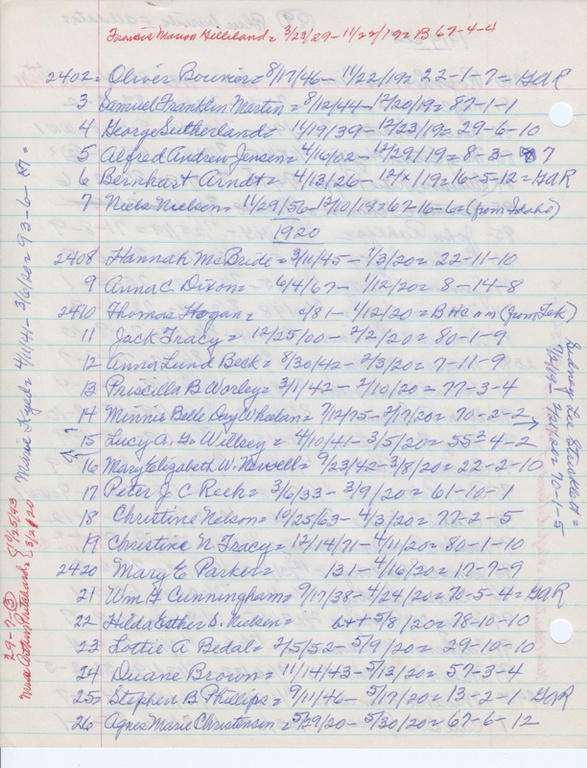 Francis Marion Gilliland = 3/23/29 - 11/22/19 = B 67-4-4
2402 = Oliver Bouvier = 8/17/46 - 11/22/19 = 22-1-7 = GAR
3 Samuel Franklin Martin = 8/12/44 - 12/20/19 = 87-1-1
4 George Sutherland = 11/19/39 - 12/23/19 = 29-6-10
5 Alfred Andrew Jensen = 4/16/02 - 12/29/19 = 8-3- 7
6 Bernhart Arndt = 4/13/26 - 12/x/19 = 16-5-12 = GAR
7 Niels Nielsen = 11/29/56 - 12/10/19 = 67-16-6 = (from Idaho)
1920
2408 = Hannah McBride = 3/11/45 - 1/3/20 = 22-11-10
9 Anna C Dixon = 6/4/67 - 1/12/20 = 8-14-8
2410 Thomas Hogan = 4/81 - 1/12/20 = B H C n m (from Tek)
11 Jack Tracy = 12/25/00 - 2/2/20 = 80-1-9
12 Anna Lund Beck = 8/30/42 - 2/3/20 = 7-11-9
13 Priscilla B Worley = 3/1/42 - 2/10/20 = 77-3-4
14 Minnie Belle Day Wheelan = 7/12/75 - 2/17/20 = 70-2-2
15 Lucy A. Willsey = 4/10/41 - 3/5/20 = 55-4-2
16 Mary Elizabeth W. Newell = 9/23/42 - 3/8/20 = 22-2-10
17 Peter J C Reck = 3/6/33 - 3/9/20 = 61-10-1
18 Christine Nelson = 10/25/63 - 4/3/20 = 77-2-5
19 Christine N Tracy = 12/14/71 - 4/11/20 = 80-1-10
2420 Mary E Parker = 131 - 4/16/20 = 17-7-9
21 Wm H Cunningham = 9/17/38 - 4/24/20 = 70-5-4 = GAR
22 Hilda Esther S. Nielsen = b++ 5/8/20 = 78-10-10
23 Lottie A Bedal = 2/5/52 - 5/9/20 = 29-10-10
24 Duane Brown = 11/14/43 - 5/13/20 = 57-3-4
25 = Stephen B Phillips = 9/11/46 - 5/17/20 = 13-2-1 GAR
26 Agnes Marie Christensen = 5/29/20 - 5/30/20 = 67-6-12
= 4/11/41 - 3/6/20 = 93-6-
29-7-